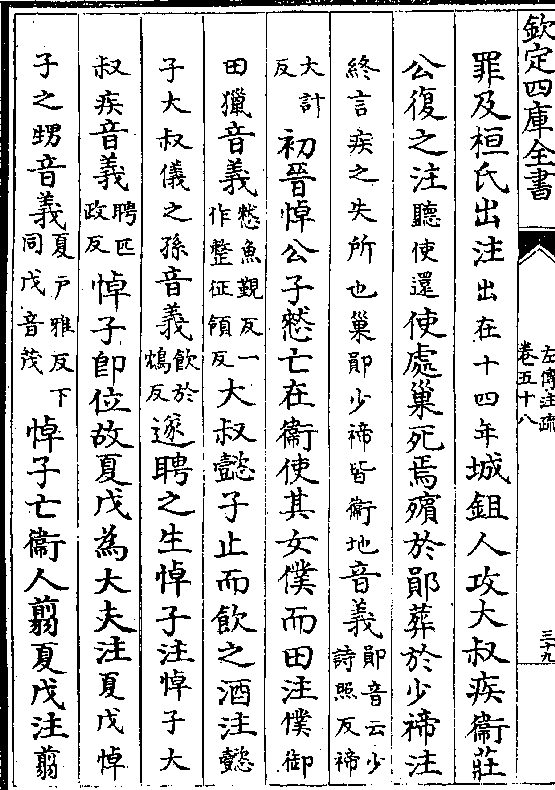 欽定四庫全書
左傳注疏
卷五十八
三十九
罪及桓氏出注出在十四年城鉏人攻大叔疾衞莊
公復之注聽使還使處巢死焉殯於鄖葬於少禘注
終言疾之失所也巢鄖少禘皆衞地音義鄖音云少詩照反禘
大計反初晉悼公子憖亡在衞使其女僕而田注僕御
田獵音義憖魚覲反一作整征領反大叔懿子止而飲之酒注懿
子大叔儀之孫音義飲於鴆反遂聘之生悼子注悼子大
叔疾音義聘匹政反悼子卽位故夏戊為大夫注夏戊悼
子之甥音義夏戸雅反下同戊音茂悼子亡衞人翦夏戊注翦